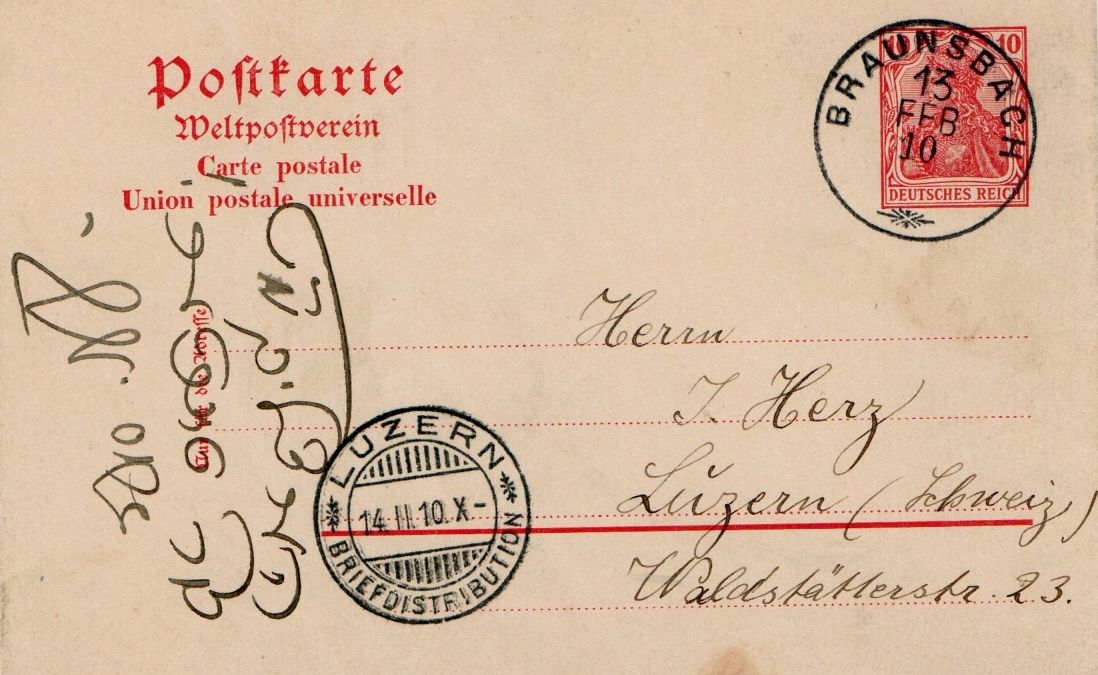 Postkarte
Weltpostverein
Carte postale
Union postale universelle
10 10
DEUTSCHES REICH
BRAUNSBACH
13
FEB
10
Nur für die Adresse
Herrn
J. Herz
Luzern (Schweiz)
Waldstätterstr. 23.
LUZERN
14.II.10.X-
BRIEFDISTRIBUTION